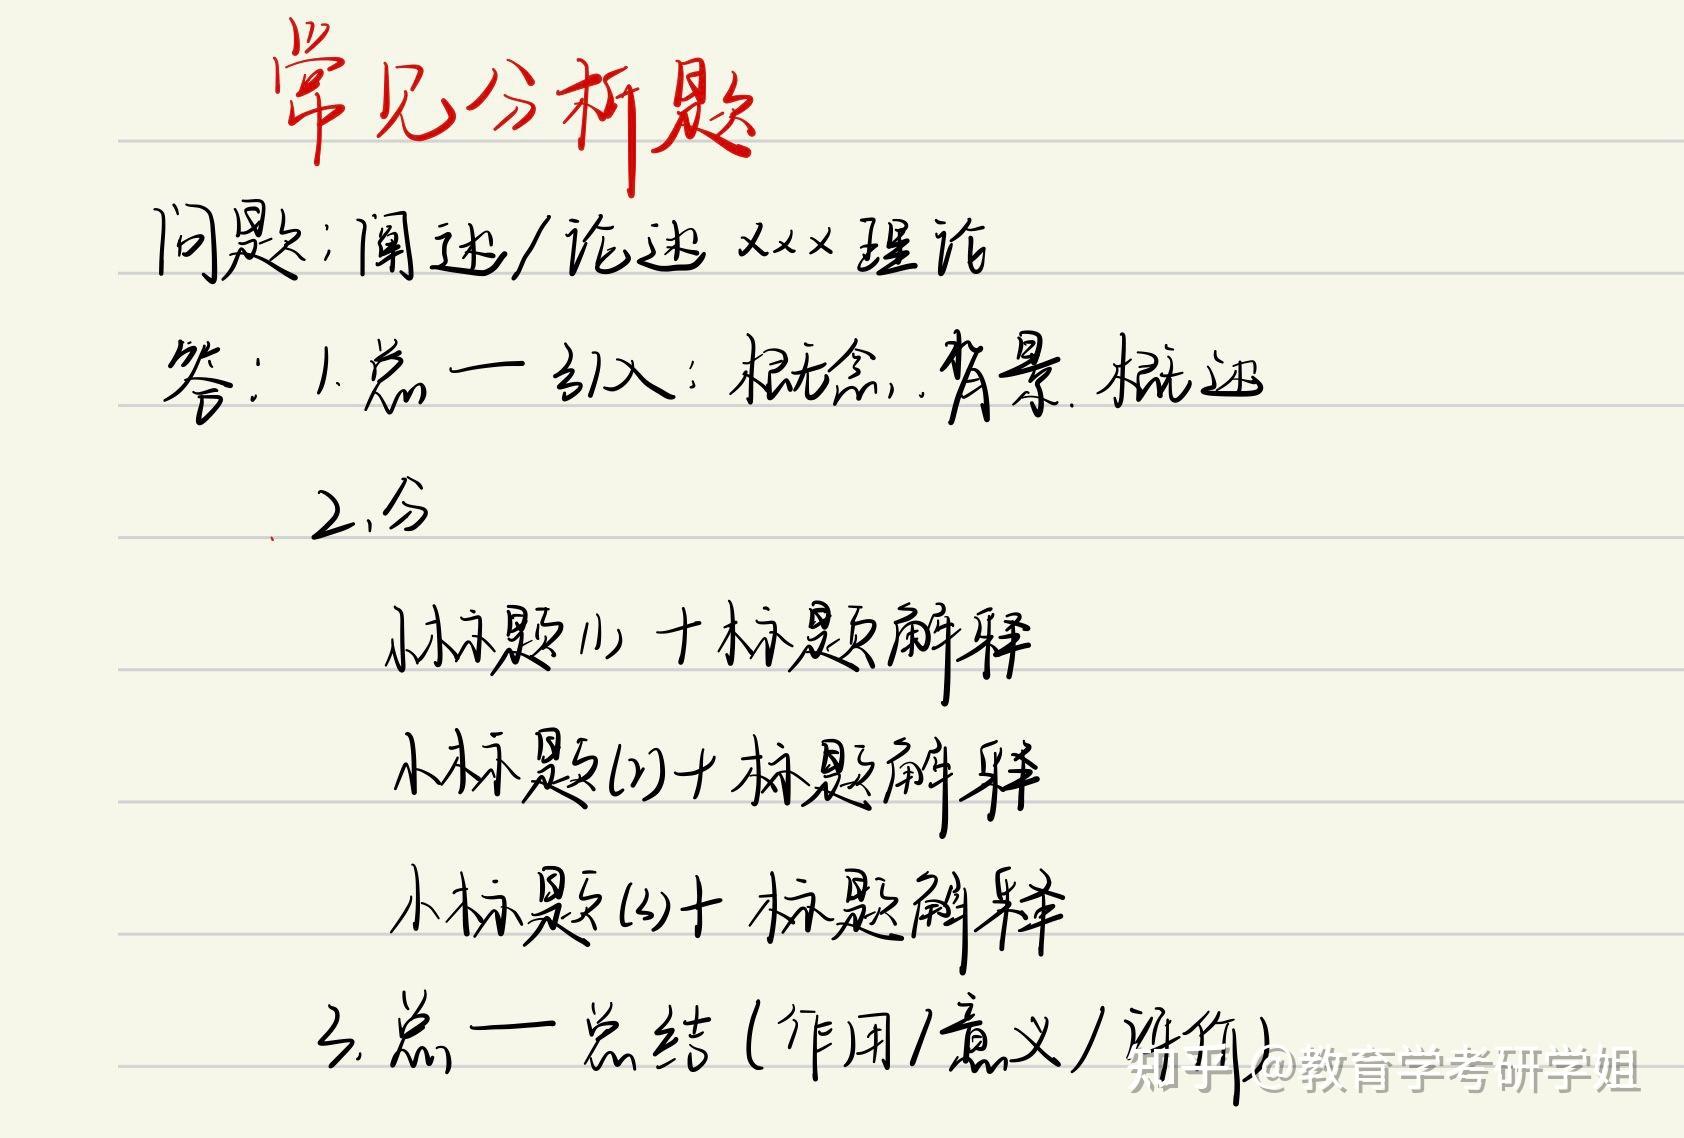 常见分析题
问题:阐述/论述 xxx 理论
答:1.总一引入:概念.背景.概述
2.分
小标题(1)+标题解释
小标题(2)+标题解释
小标题(3)+标题解释
3.总一总结(作用/意义/评价)
知乎 @教育学考研学姐